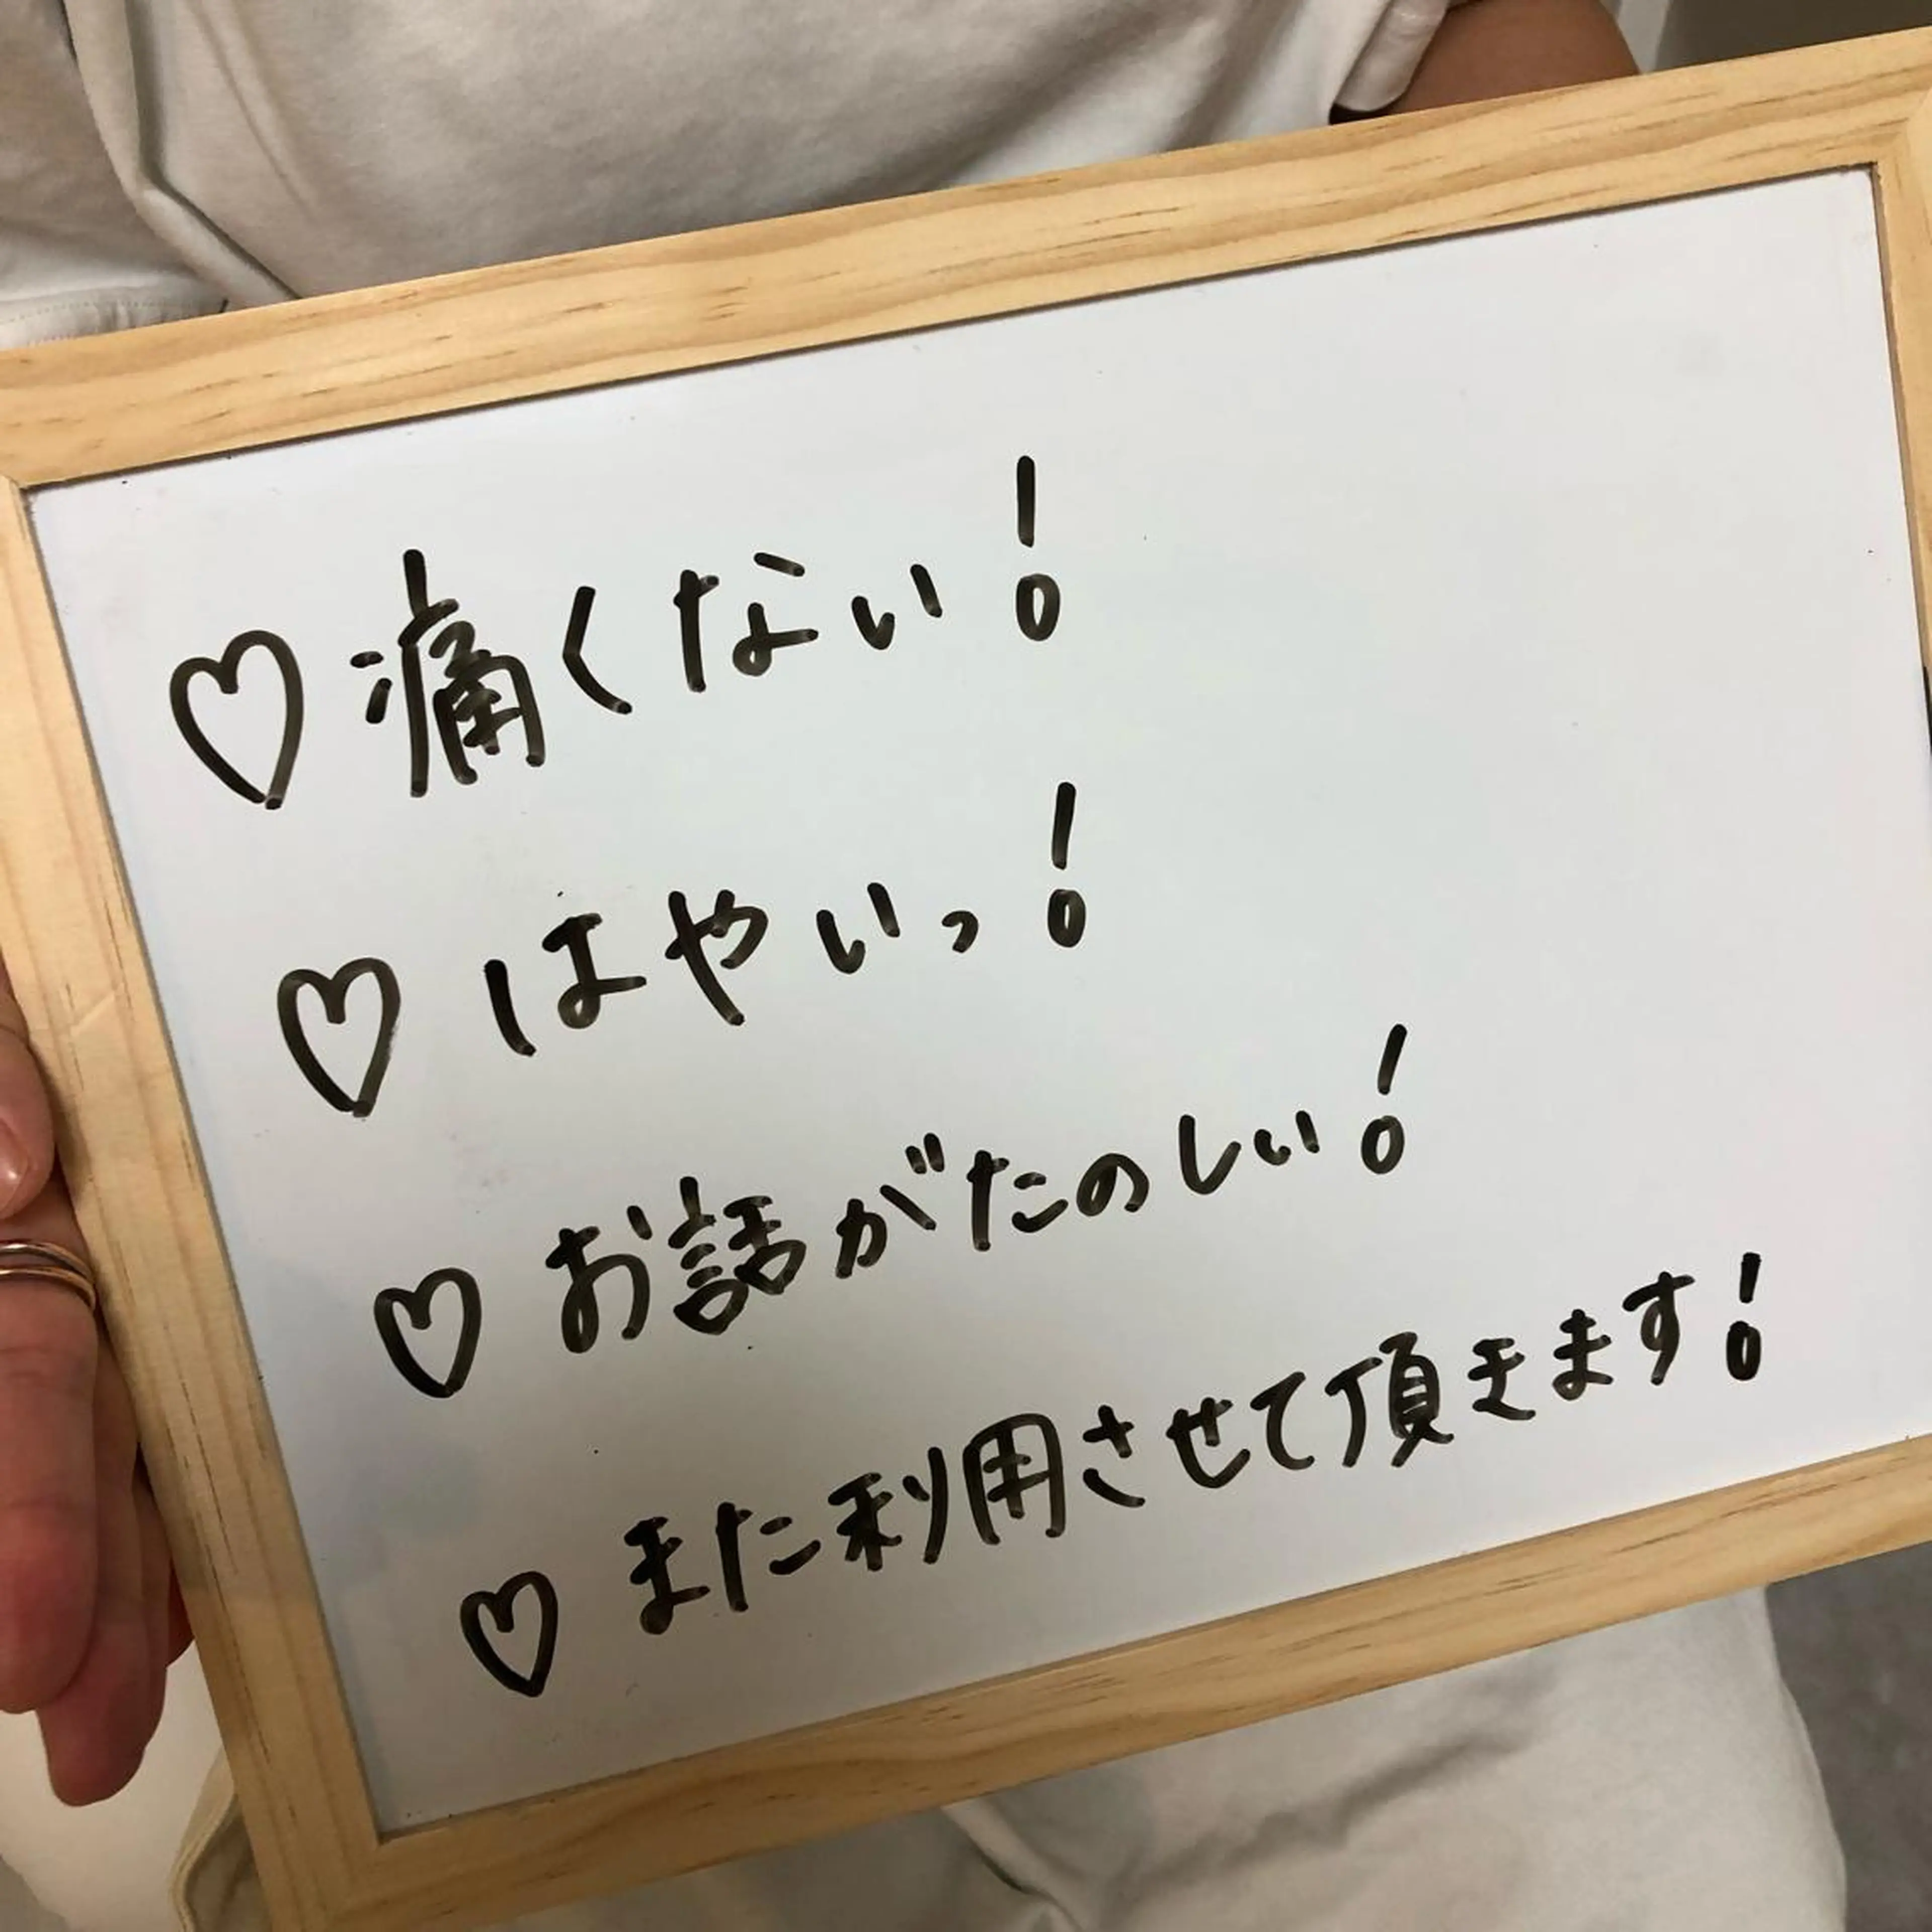 ♡ 痛くない！
♡ はやいっ！
♡ お話がたのしい！
♡ また利用させて頂きます！